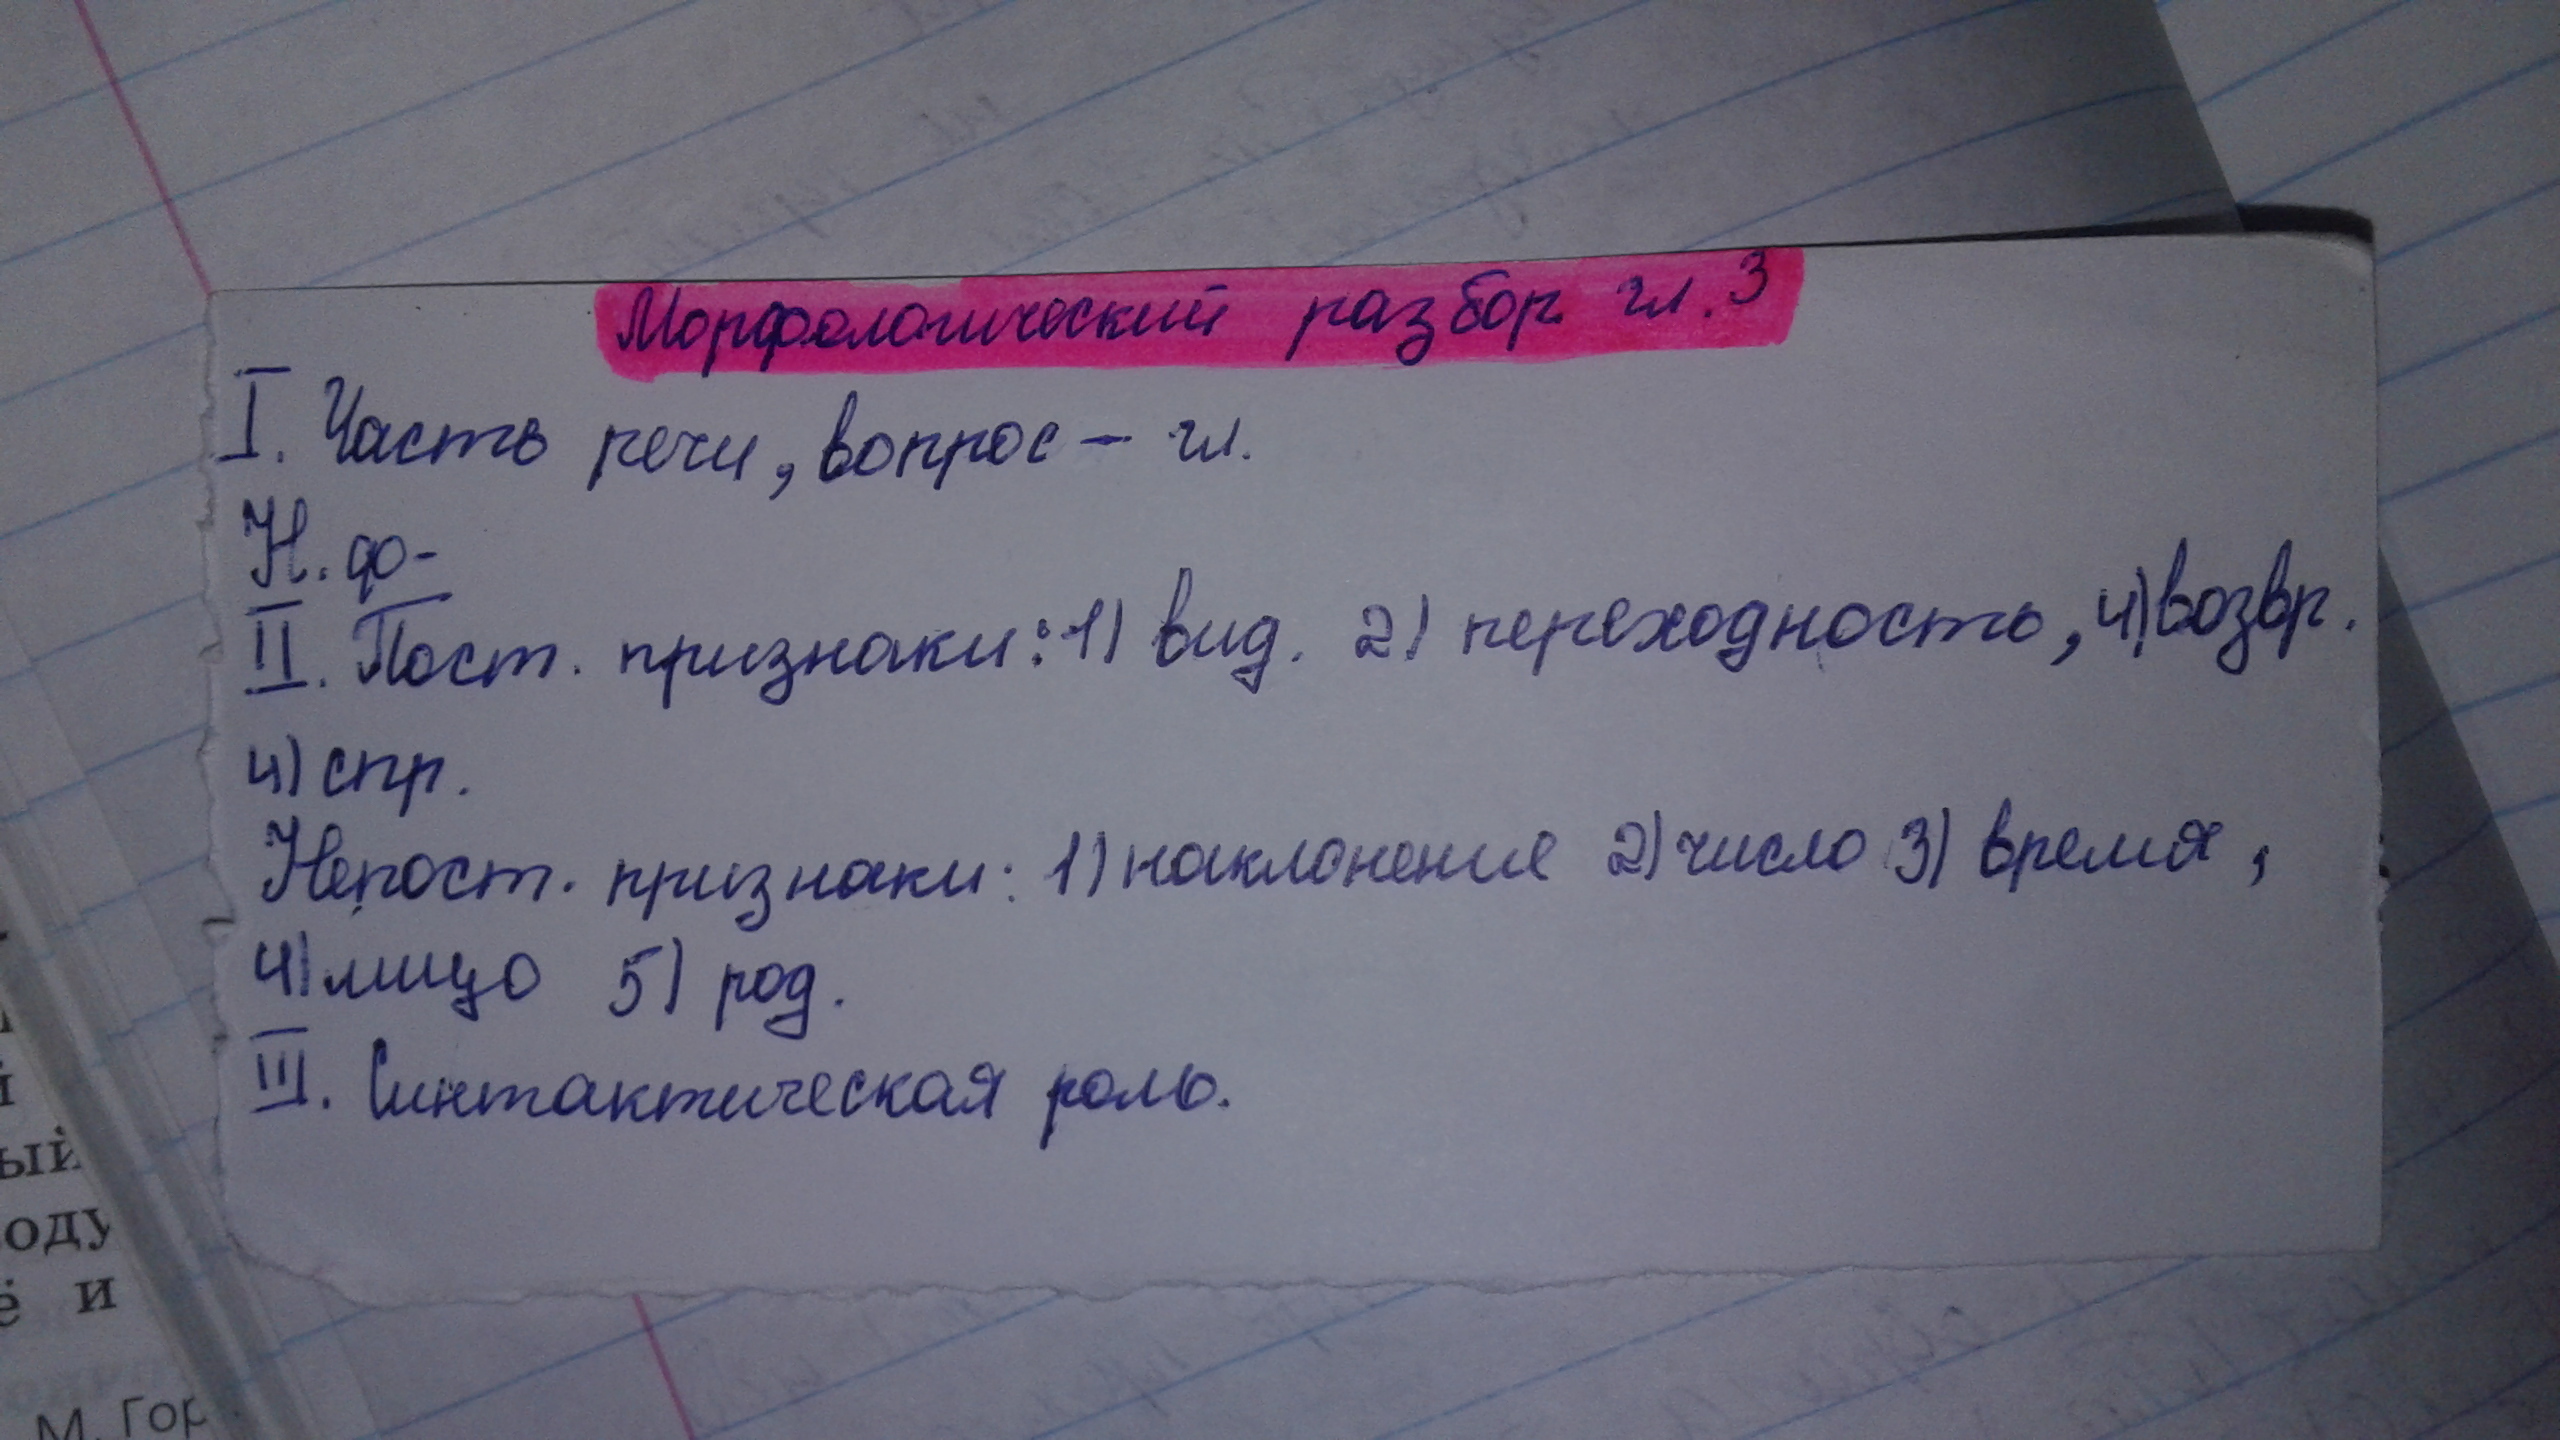 Морфологический разбор гл. 3
I. Часть речи, вопрос – гл.
Н. ф-
II. Пост. признаки: 1) вид. 2) переходность, 4) возвр.
4) спр.
Непост. признаки: 1) наклонение 2) число 3) время,
4) лицо 5) род.
III. Синтактическая роль.
ый
оду
ё и
М. Гор